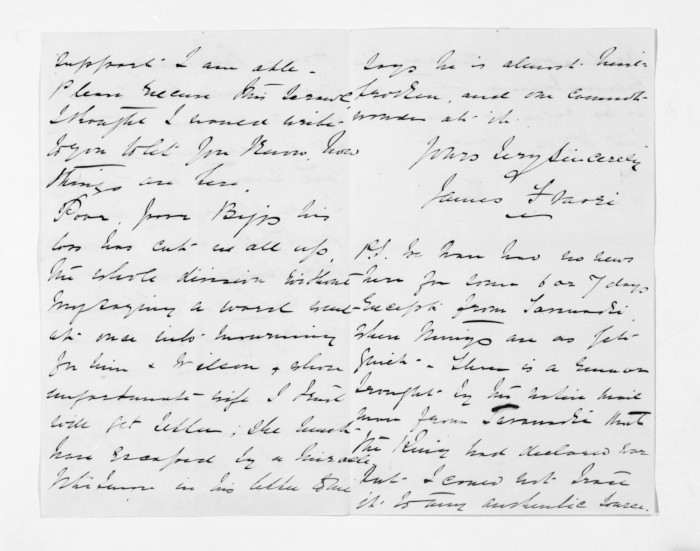 support I am able -
Please Excuse this Scrawl
I thought I would write
to you to let you know how
things are here.
Poor, poor Biggs his
loss has cut us all up,
the whole division without
my saying a word went
at once into mourning
for him & Wilson & whose
unfortunate wife I trust
will get better; she must
have escaped by a miracle
Whitmore in his letter to me
says he is almost heart
broken, and one cannot
wonder at it.
Yours very Sincerely
James Fraser
P.S. We have had no news
here for some 6 or 7 days
Except from Taranaki,
where things are as yet
quiet - There is a rumour
brought by the native mail
man from Taranaki that
the King had declared war
but I could not trace
it to any authentic source.